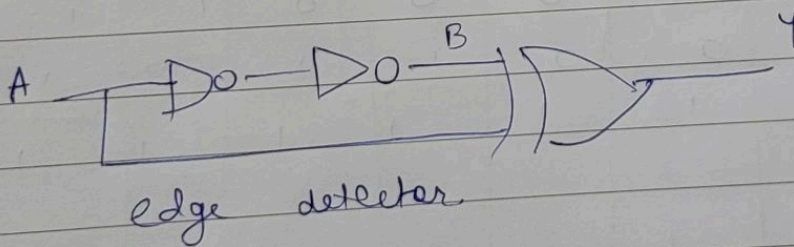 B
Y
A
edge detector